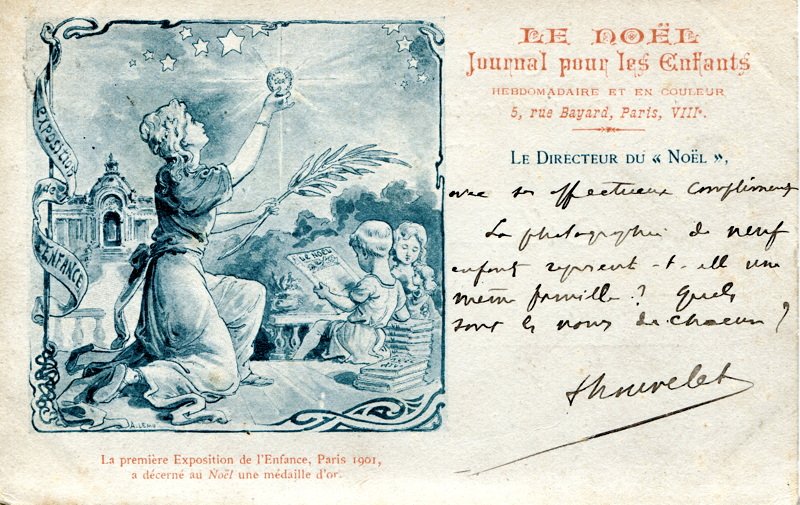 EXPOSITION
de
L'ENFANCE
LE NOËL
A. LEAU
La première Exposition de l'Enfance, Paris 1901,
a décerné au Noël une médaille d'or.
LE NOËL
Journal pour les Enfants
HEBDOMADAIRE ET EN COULEUR
5, rue Bayard, Paris, VIIIe.
LE DIRECTEUR DU « NOËL »,
avec ses affectueux compliments
La photographie de neuf
enfants représent-t-elle une
même famille ? Quels
sont les noms de chacun ?